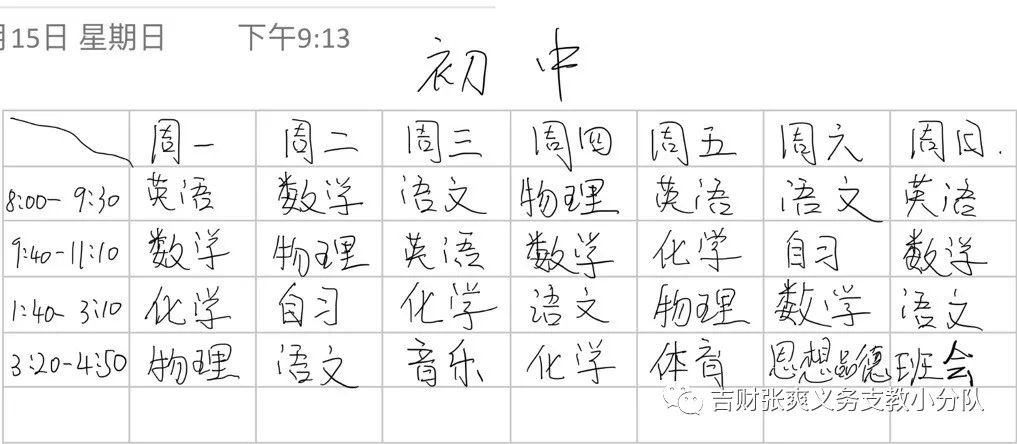 月15日 星期日 下午9:13
初中
周一 周二 周三 周四 周五 周六 周日.
8:00-9:30 英语 数学 语文 物理 英语 语文 英语
9:40-11:10 数学 物理 英语 数学 化学 自习 数学
1:40-3:10 化学 自习 化学 语文 物理 数学 语文
3:20-4:50 物理 语文 音乐 化学 体育 思想品德 班会
吉财张爽义务支教小分队